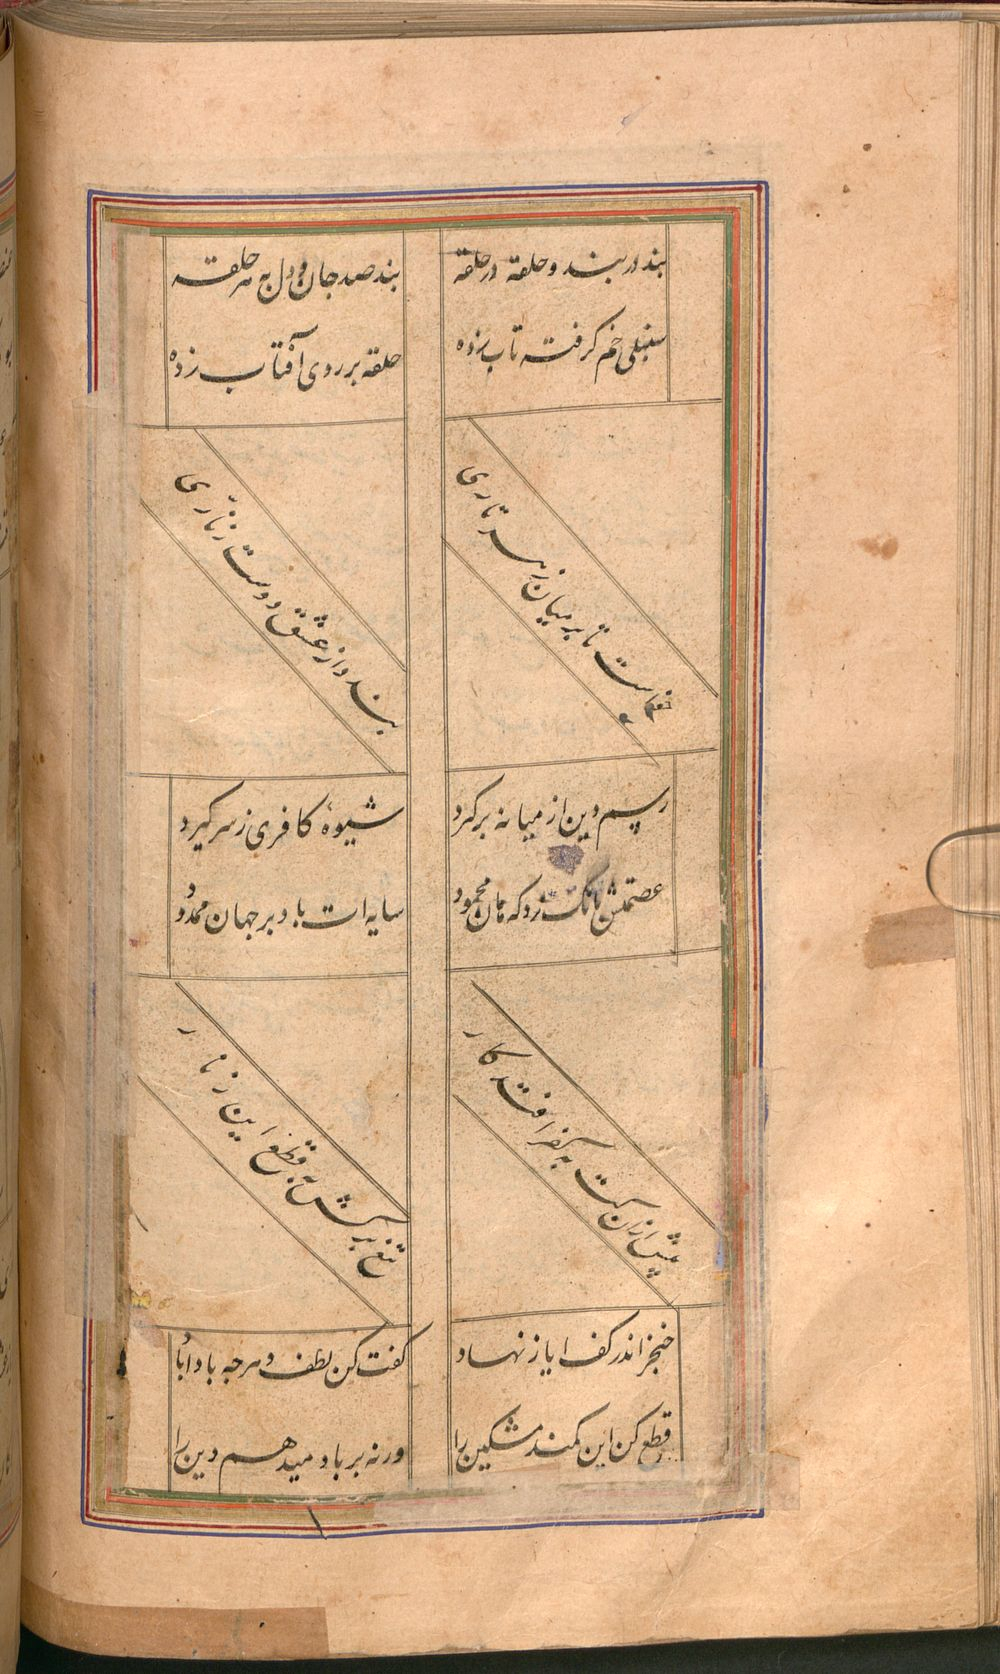 بند در بند و حلقه در حلقه
بند صد جان و دل به هر حلقه
سنبلی خم گرفته تاب زده
حلقه بر روی آفتاب زده
خواست تا بر میان زهر تاری
بندد از عشق دوست زناری
رسم دین از میانه برگیرد
شیوهٔ کافری ز سر گیرد
عصمتش بانک زد که هان محمود
سایه ات باد بر جهان ممدود
پیش ازان کت به کفر افتد کار
تیغ برکش به قطع این زنار
خنجر اندر کف ایاز نهاد
گفت کن لطف و هرچه بادا باد
قطع کن این کمند مشکین را
ورنه بر باد میدهم دین را